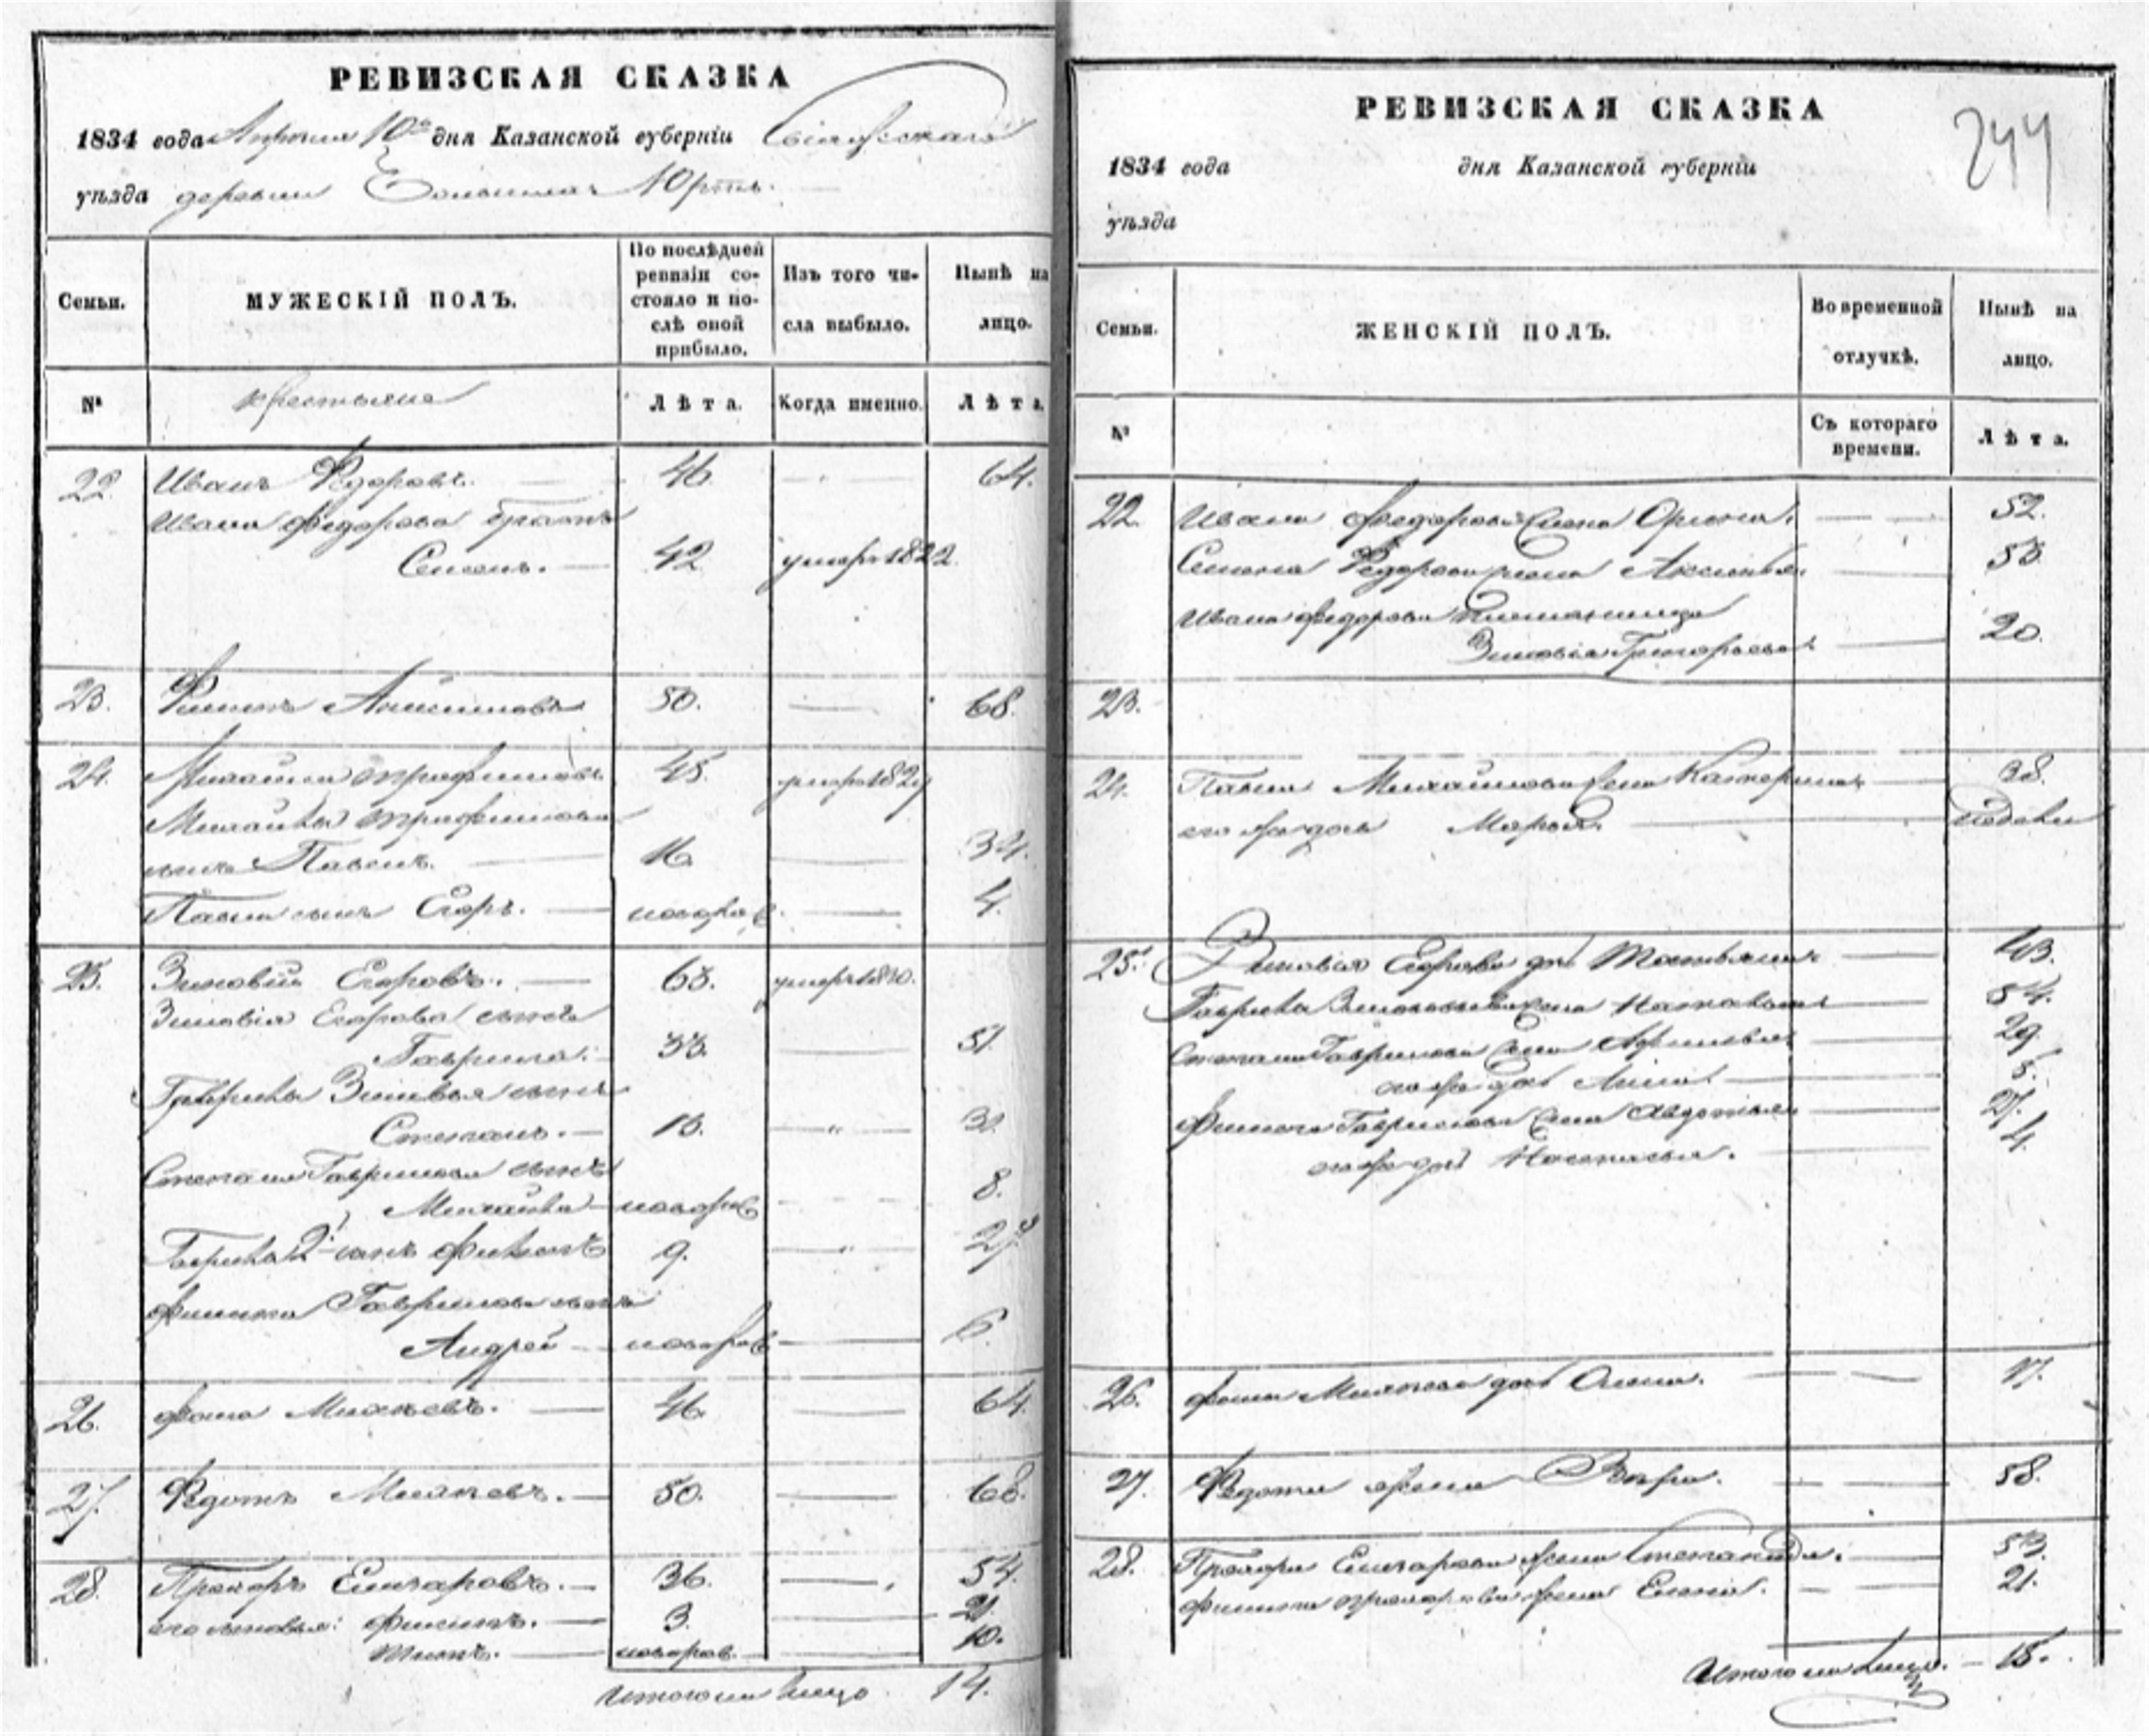 РЕВИЗСКАЯ СКАЗКА
1834 года Апреля 10го дня Казанской губерніи Свіяжскаго
уѣзда деревни Большихъ Юртъ.
Семьи.
МУЖЕСКІЙ ПОЛЪ.
По послѣдней ревизіи состояло и послѣ оной прибыло.
Изъ того числа выбыло.
Нынѣ на лицо.
№
крестьяне
Лѣта.
Когда именно.
Лѣта.
22. Иванъ Федоровъ. 46. 64.
Ивана Федорова братъ
Семенъ. 42. умеръ 1822.
23. Филипъ 50. 68.
24. Михайла Трофимовъ 45. умеръ 1829
Михайлы Трофимова
сынъ Павелъ. 16. 34.
Павла сынъ Егоръ. новорож. 4.
25. Зиновій Егоровъ. 63. умеръ
Зиновія Егорова сынъ
Гаврила. 33. 51.
Гаврилы Зиновья сынъ
Степанъ. 13. 31.
Степана Гаврилова сынъ
Михайла новорож 8.
Гаврилы 2й сынъ Филипъ 9. 27.
Филипа Гаврилова сынъ
Андрей новорож 6.
26. Фома 46. 64.
27. Федотъ 50. 68.
28. Прохоръ 36. 54.
его сыновья: Филипъ. 3. 21.
Титъ. новорож. 10.
Итого на лицо 14.
РЕВИЗСКАЯ СКАЗКА
244
1834 года дня Казанской губерніи
уѣзда
Семьи.
ЖЕНСКІЙ ПОЛЪ.
Во временной отлучкѣ.
Нынѣ на лицо.
№
Съ котораго времени.
Лѣта.
22. Ивана Федорова жена Орина. 52.
Семена Федорова жена Аксинья. 53.
Ивана Федорова племянница
Зиновія Григорьева 20.
23.
24. Павла Михайлова жена Катерина 38.
его дочь Марья.
25. Зиновія Егорова дочь Татьяна 43.
Гаврилы жена Наталья 54.
Степана Гаврилова жена 29.
дочь Анна 5.
Филипа Гаврилова жена Авдотья 27.
дочь Настасья. 4.
26. Фомы дочь Олена. 17.
27. Федота жена 58.
28. Прохора жена Степанида. 53.
Филипа Прохорова жена Елена. 21.
Итого на лицо. 15.